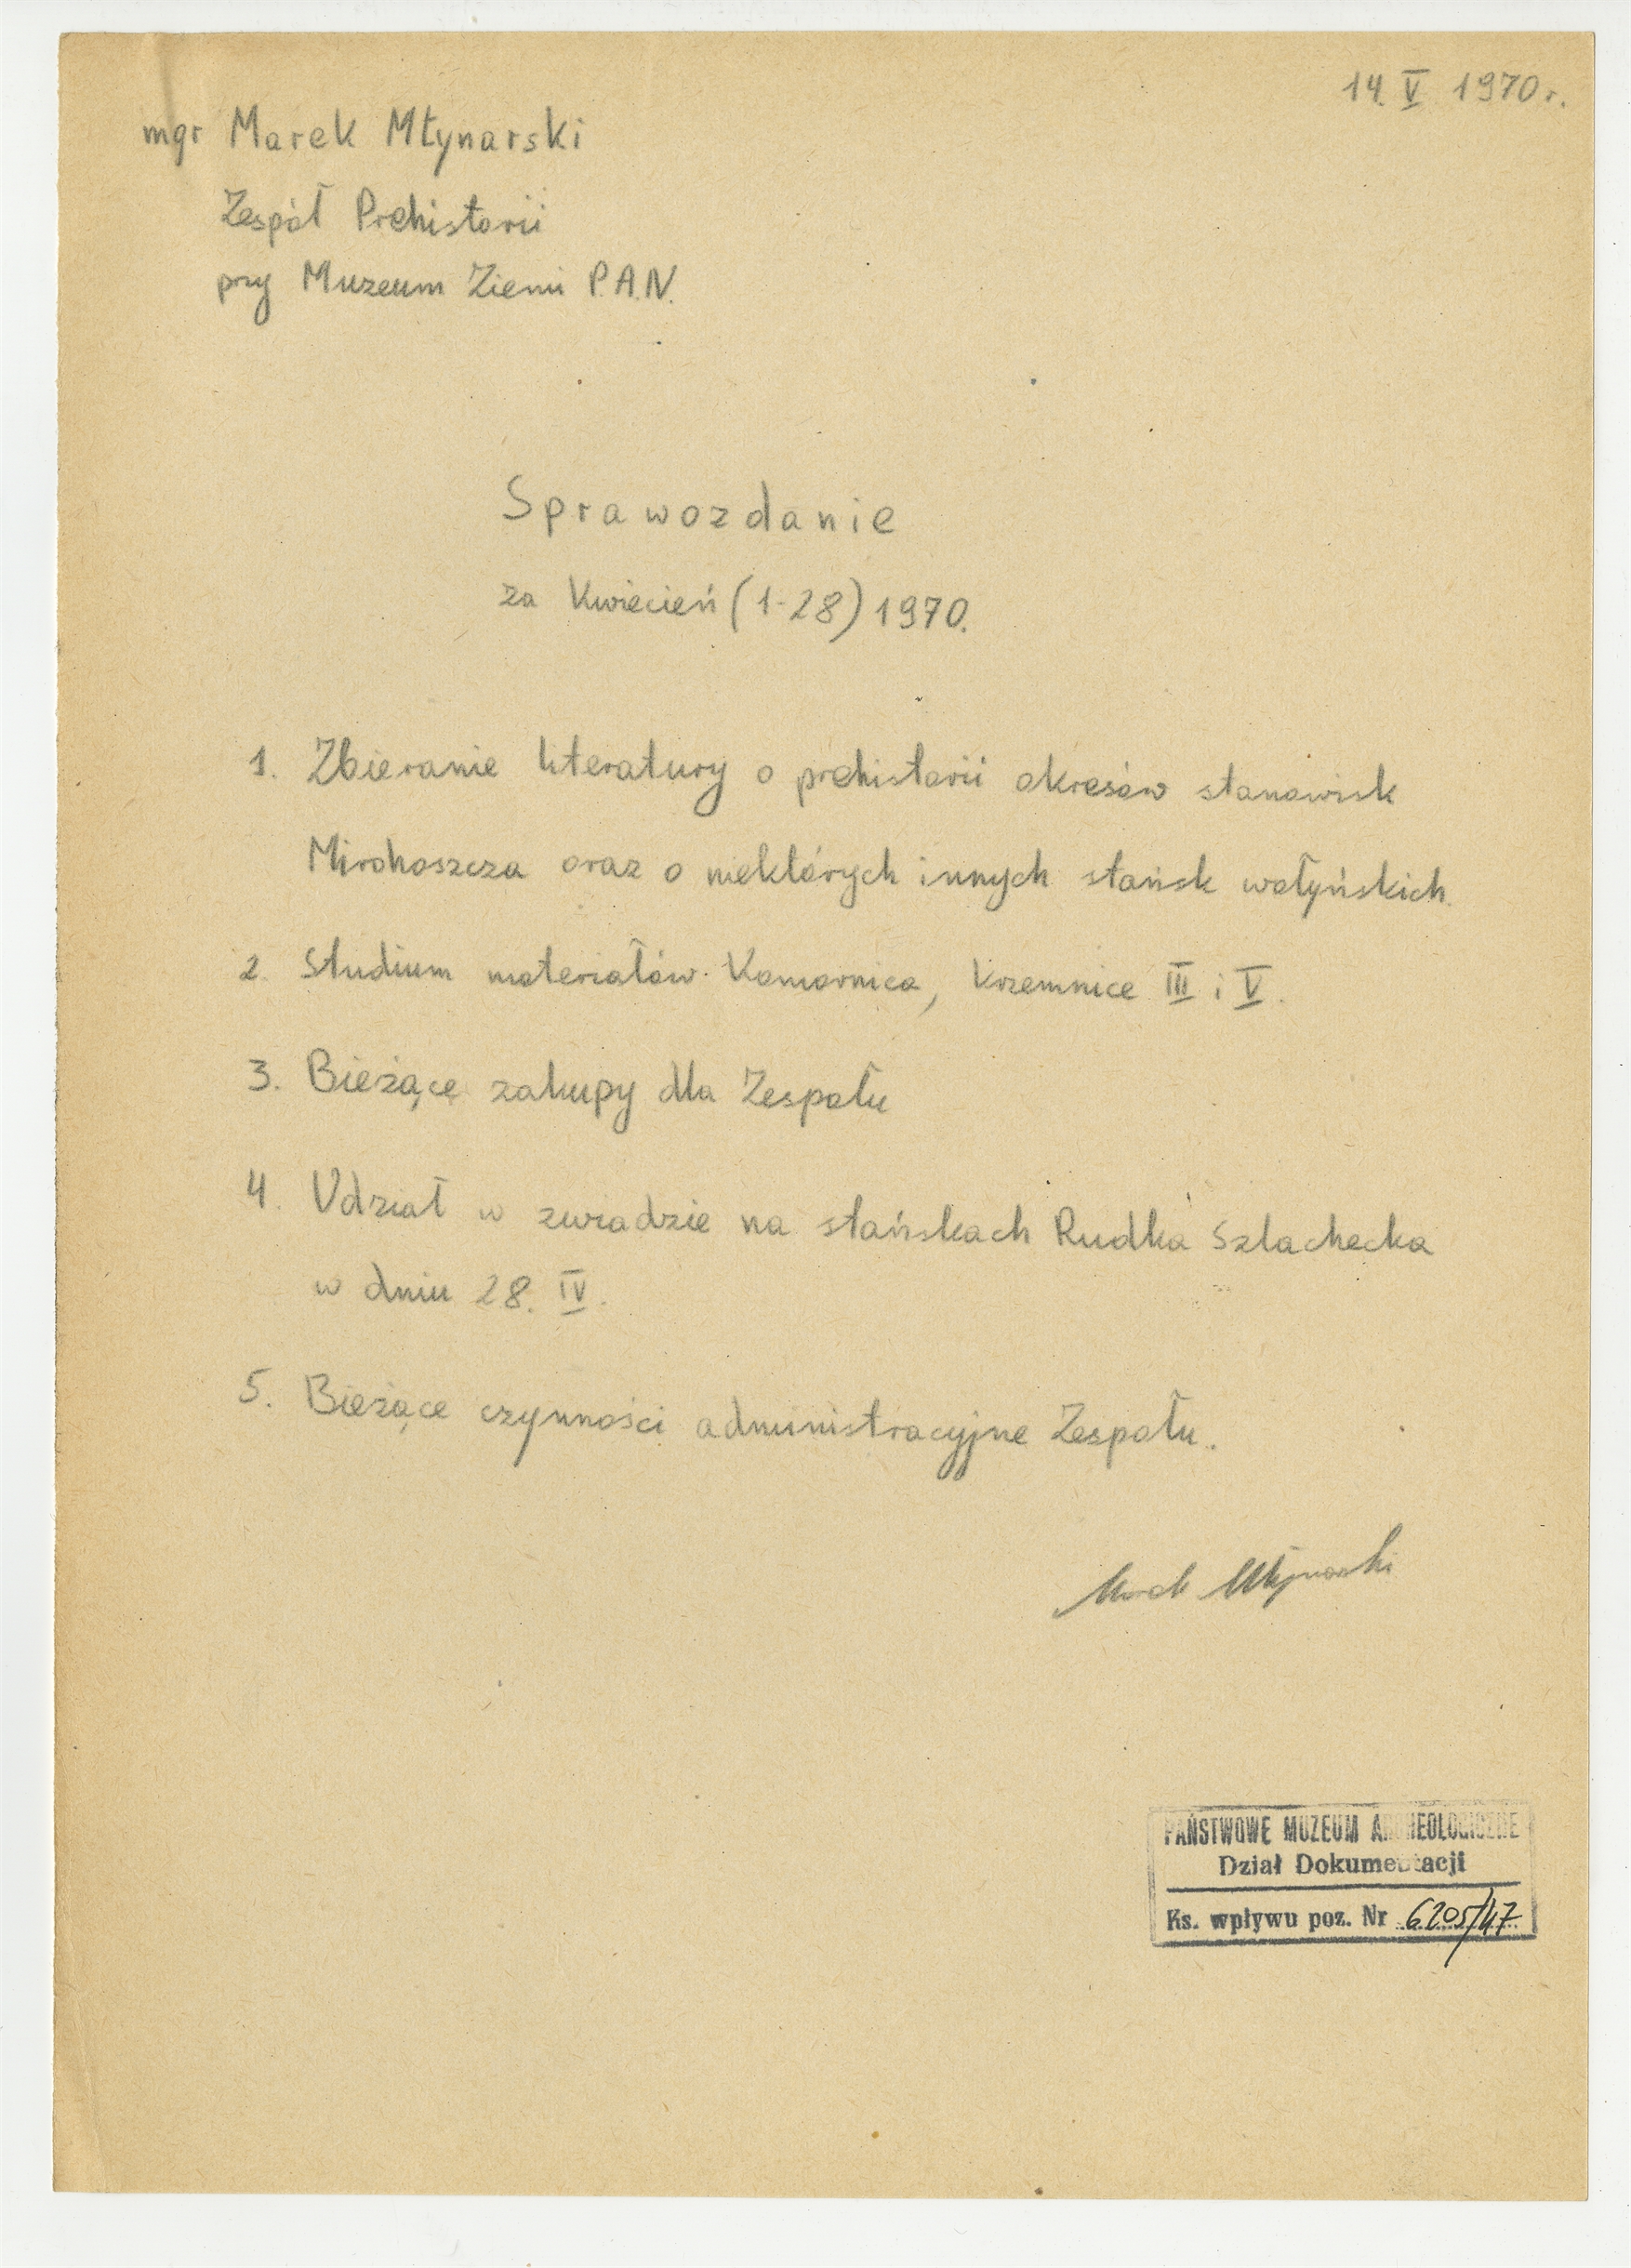 14. V 1970 r.
mgr Marek Młynarski
Zespół Prehistorii
przy Muzeum Ziemi P.A.N.
Sprawozdanie
za Kwiecień (1-28) 1970.
1. Zbieranie literatury o prehistorii okresów stanowisk
Mirohoszcza oraz o niektórych innych stańsk wołyńskich.
2. Studium materiałów Komornica, Krzemnice III i V.
3. Bieżące zakupy dla Zespołu
4. Udział w zwiadzie na stańskach Rudka Szlachecka
w dniu 28. IV.
5. Bieżące czynności administracyjne Zespołu.
Marek Młynarski
PAŃSTWOWE MUZEUM ARCHEOLOGICZNE
Dział Dokumentacji
Ks. wpływu poz. Nr 6205/47